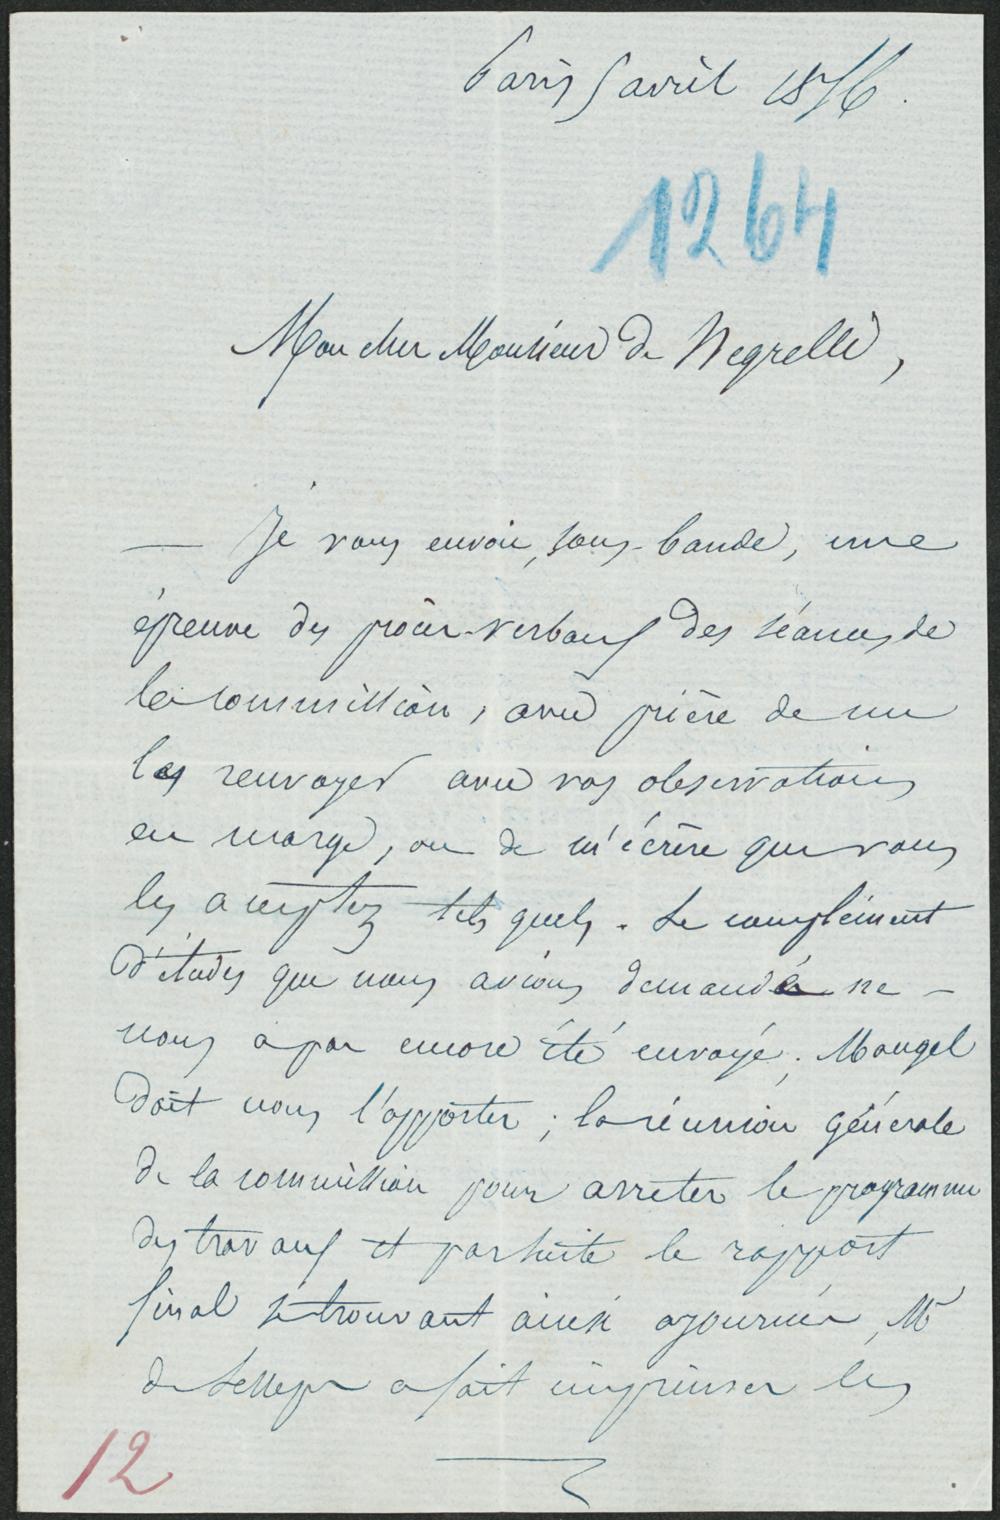 Paris 5 avril 1856.
1264
Mon cher Monsieur de Negrelli,
— Je vous envoie, sous-bande, une
épreuve des procès-verbaux des séances de
la commission, avec prière de me
les renvoyer avec vos observations
en marge, ou de m'écrire que vous
les acceptez tels quels. Le complément
d'études que nous avions demandé ne –
nous a pas encore été envoyé. Mougel
doit nous l'apporter ; la réunion générale
de la commission pour arrêter le programme
des travaux et par suite le rapport
final se trouvant ainsi ajournée, Mr
de Lesseps a fait imprimer les
12